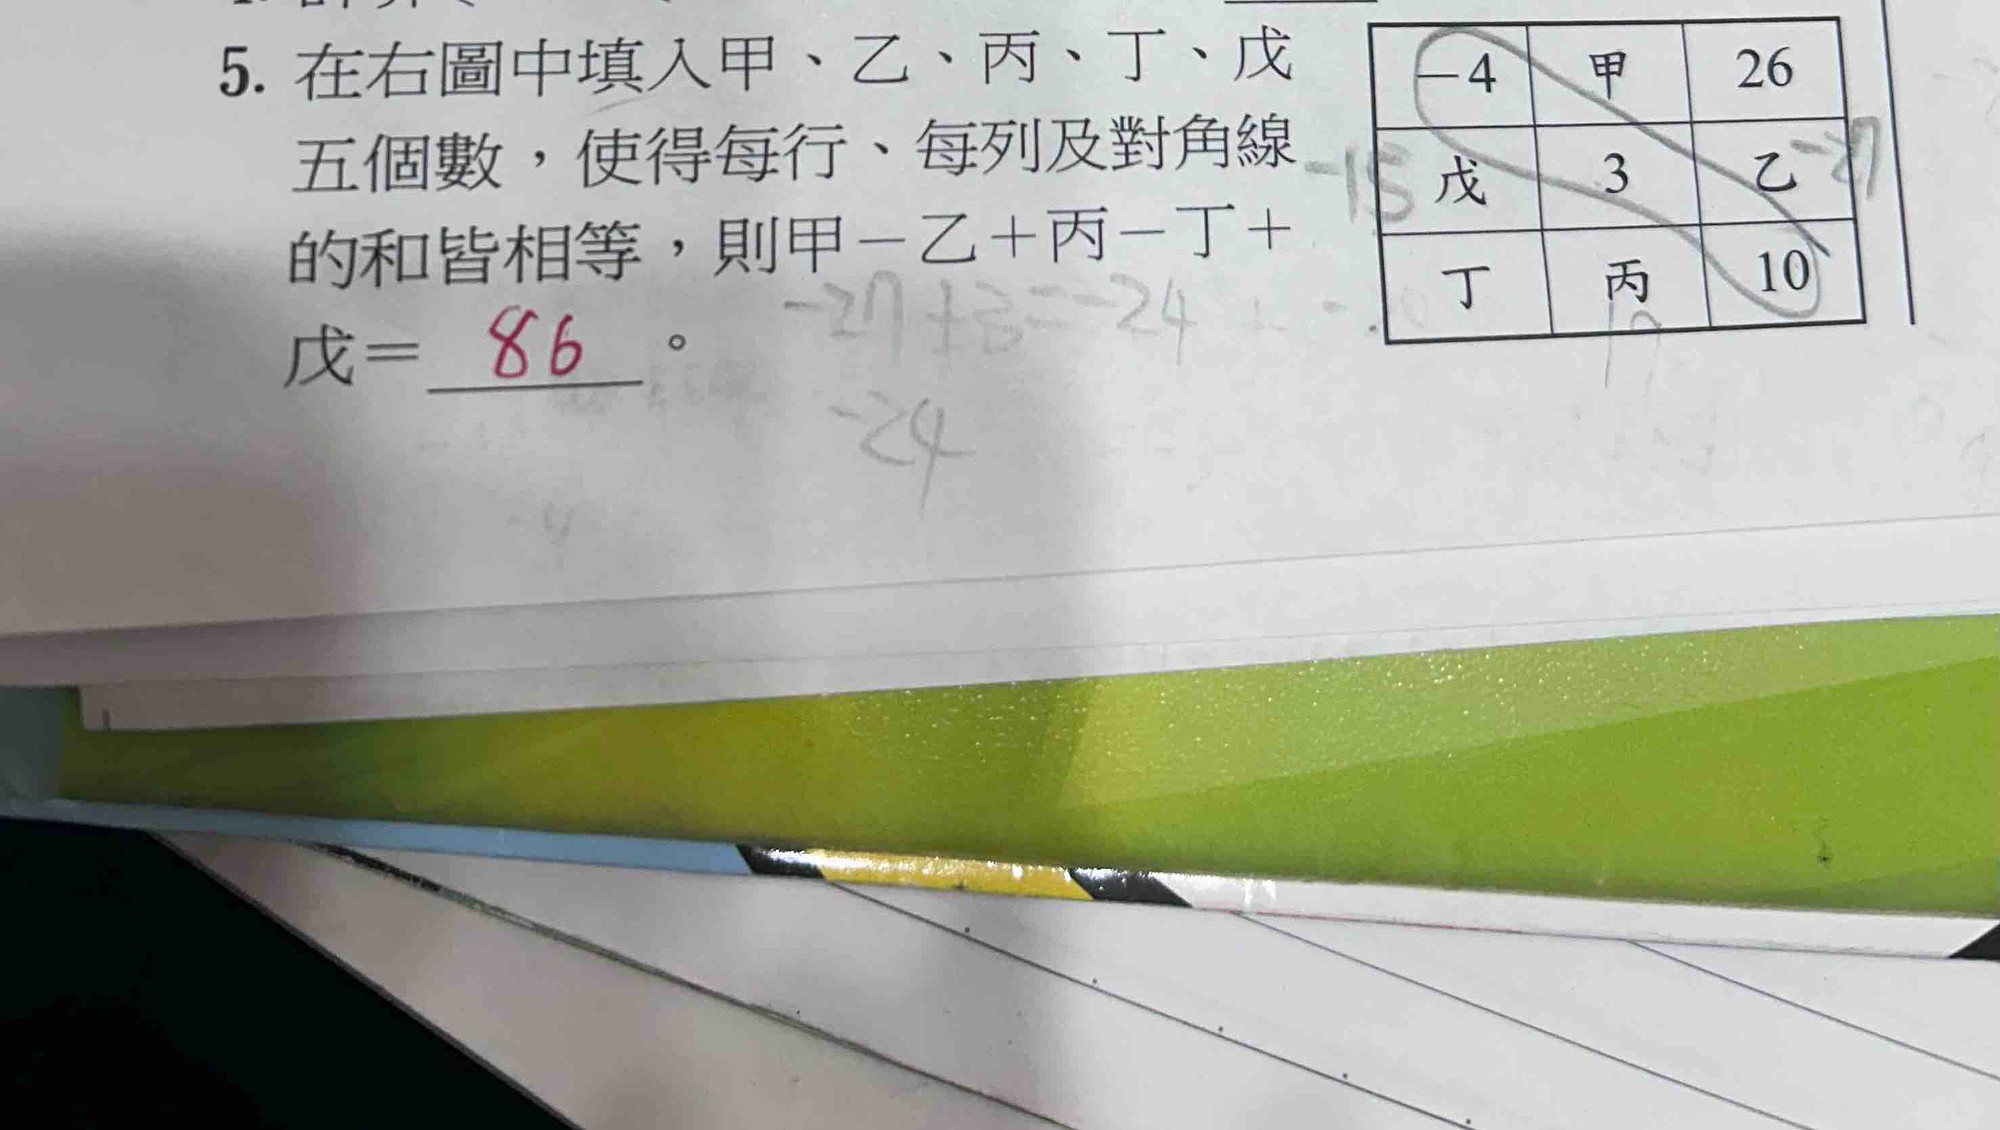 5. 在右圖中填入甲、乙、丙、丁、戊
五個數，使得每行、每列及對角線
的和皆相等，則甲－乙＋丙－丁＋
戊＝ 86 。
-4 甲 26
-15 戊 3 乙 -27
丁 丙 10
-27+3=-24
-24
-4